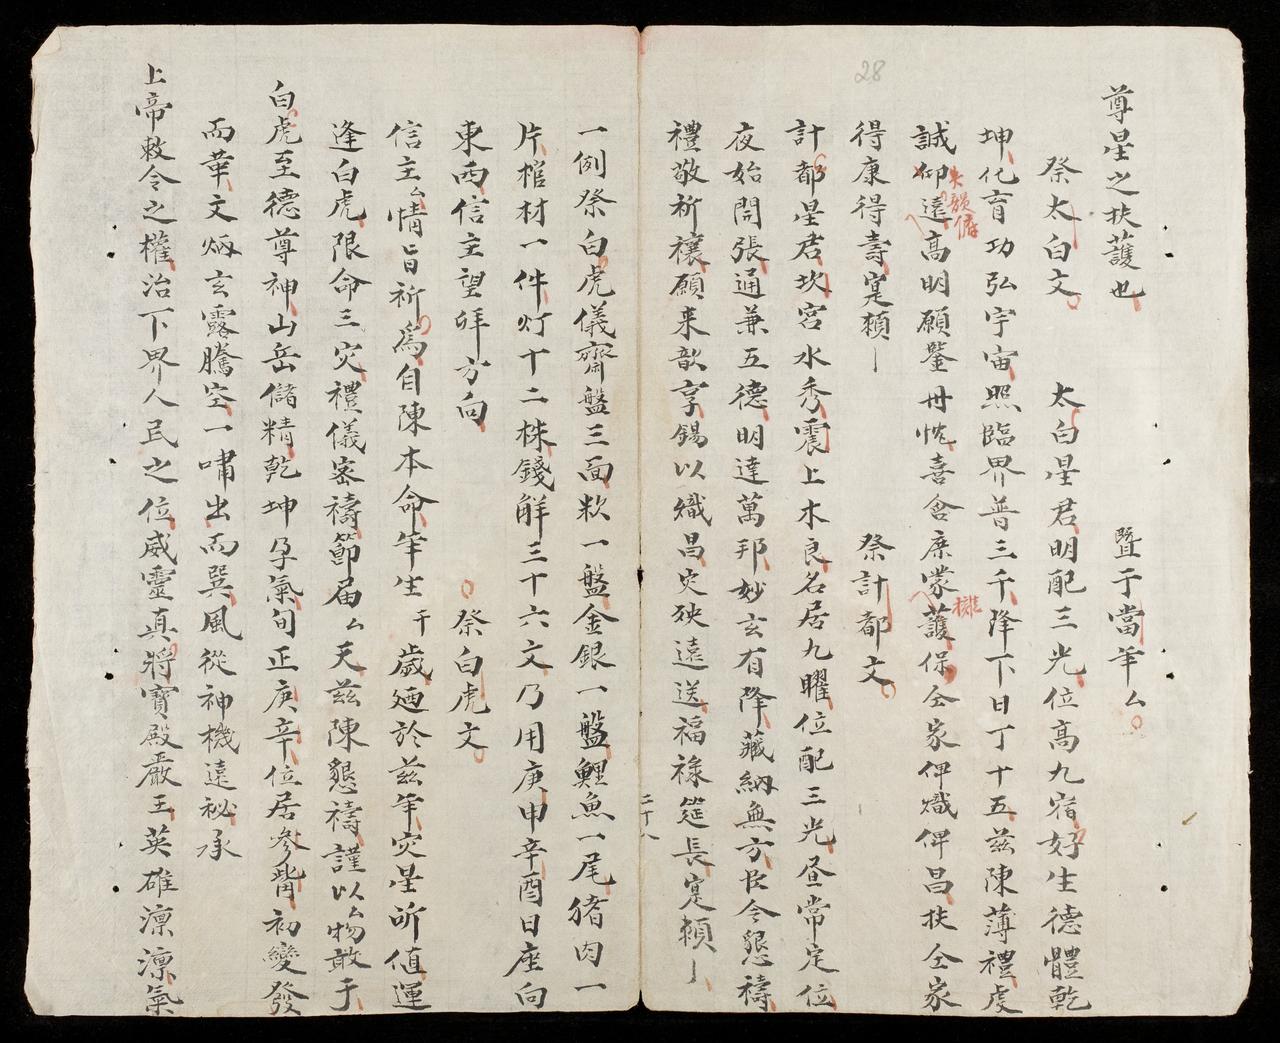 28
尊星之扶護也 曁于當年厶
祭太白文 太白星君明配三光位高九宿好生德體乾
坤化育功弘宇宙照臨界普三千降下日丁十五兹陳薄禮虔
誠仰遠高明願鑒丹忱喜含庶蒙護保全家俾熾俾昌扶全家
得康得壽寔賴 祭計都文
計都星君坎宮水秀震上木良名居九曜位配三光昼常定位
夜始開張通兼五德明達萬邦妙玄有降藏納無方臣今懇禱
禮敬祈禳願来歆享錫以熾昌灾殃遠送福祿筵長寔賴
二十八
一例祭白虎儀齋盤三面粆一盤金銀一盤鯉魚一尾猪肉一
片棺材一件灯十二株錢觧三十六文乃用庚申辛酉日座向
東西信主望拜方向 祭白虎文
信主厶情旨祈為自陳本命年生 千歲廼於兹年灾星所值運
逢白虎限命三灾禮儀密禱節届厶天兹陳懇禱謹以厶物敢于
白虎至德尊神山岳儲精乾坤孕氣旬正庚辛位居參觜初變發
而華文炳玄露騰空一嘯出而巽風從神機遠秘承
上帝敕令之權治下界人民之位威靈真將寶殿嚴王英雄凛凛氣